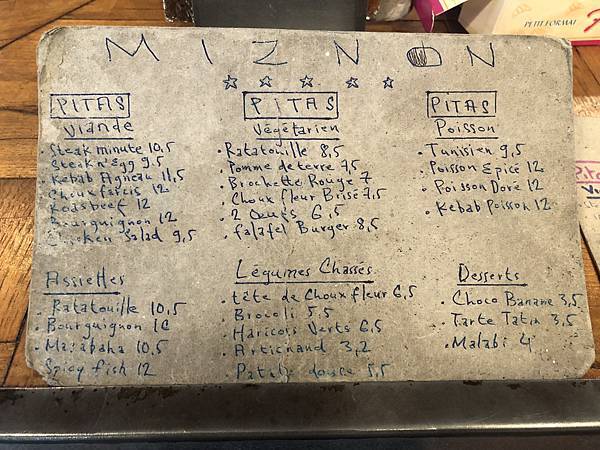 PETIT FORMAT
MIZNON
PITAS
Viande
Steak minute 10,5
Steak n'Egg 9,5
Kebab Agneau 11,5
Choux farcis 12
Roasbeef 12
Bourguignon 12
Chicken Salad 9,5
PITAS
Végétarien
Ratatouille 8,5
Pomme de terre 7,5
Brochette Rouge 7
Chou fleur Brisé 7,5
2 Oeufs 6,5
falafel Burger 8,5
PITAS
Poisson
Tunisien 9,5
Poisson Epicé 12
Poisson Doré 12
Kebab Poisson 12
Assiettes
Ratatouille 10,5
Bourguignon 16
Masabaha 10,5
Spicy fish 12
Légumes Chassés
tête de Choux fleur 6,5
Brocoli 5,5
Haricots Verts 6,5
Artichaud 3,2
Patate douce 5,5
Desserts
Choco Banane 3,5
Tarte Tatin 3,5
Malabi 4